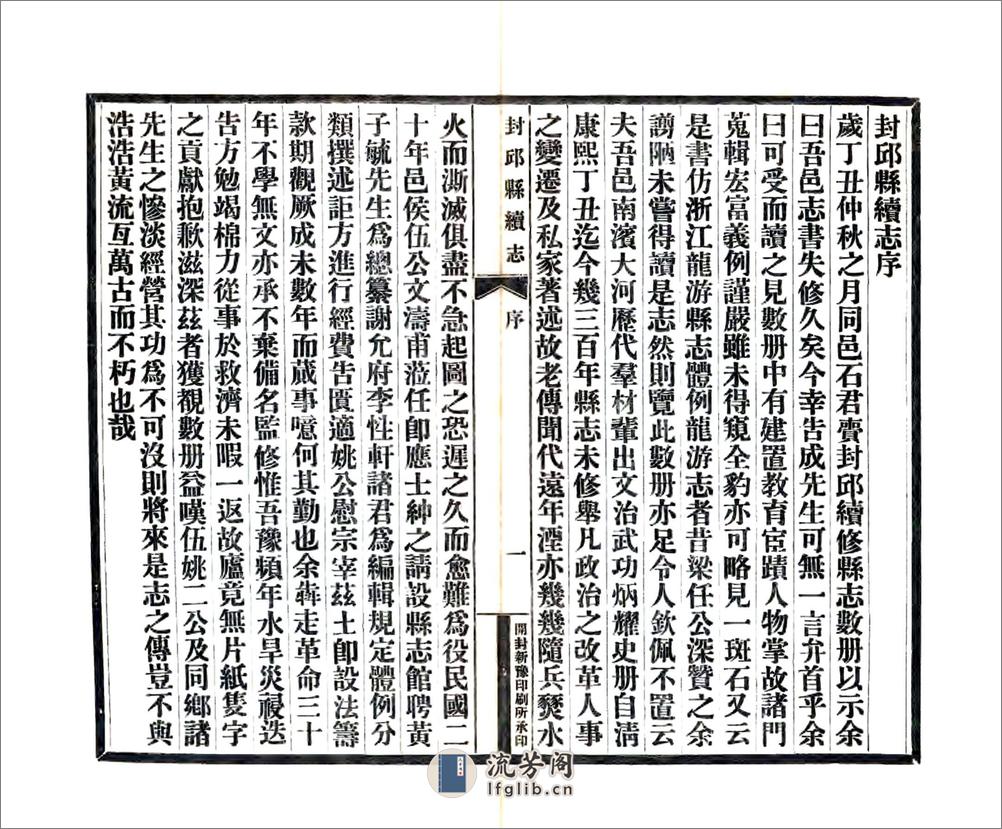 封邱縣續志序
歲丁丑仲秋之月同邑石君賫封邱續修縣志數册以示余
曰吾邑志書失修久矣今幸告成先生可無一言弁首乎余
曰可受而讀之見數册中有建置教育宦蹟人物掌故諸門
蒐輯宏富義例謹嚴雖未得窺全豹亦可略見一斑石又云
是書仿浙江龍游縣志體例龍游志者昔梁任公深贊之余
謭陋未嘗得讀是志然則覽此數册亦足令人欽佩不置云
夫吾邑南濱大河歷代羣材輩出文治武功炳耀史册自淸
康熙丁丑迄今幾三百年縣志未修舉凡政治之改革人事
之變遷及私家著述故老傳聞代遠年湮亦幾幾隨兵燹水
封邱縣續志
序
一
開封新豫印刷所承印
火而澌滅俱盡不急起圖之恐遲之久而愈難爲役民國二
十年邑侯伍公文濤甫蒞任卽應士紳之請設縣志館聘黃
子毓先生爲總纂謝允府李性軒諸君爲編輯規定體例分
類撰述詎方進行經費告匱適姚公慰宗宰茲土卽設法籌
款期觀厥成未數年而蕆事噫何其勤也余犇走革命三十
年不學無文亦承不棄備名監修惟吾豫頻年水旱災祲迭
告方勉竭棉力從事於救濟未暇一返故廬竟無片紙隻字
之貢獻抱歉滋深茲者獲覩數册益嘆伍姚二公及同鄉諸
先生之慘淡經營其功爲不可沒則將來是志之傳豈不與
浩浩黃流亙萬古而不朽也哉
流芳阁
lfglib.cn